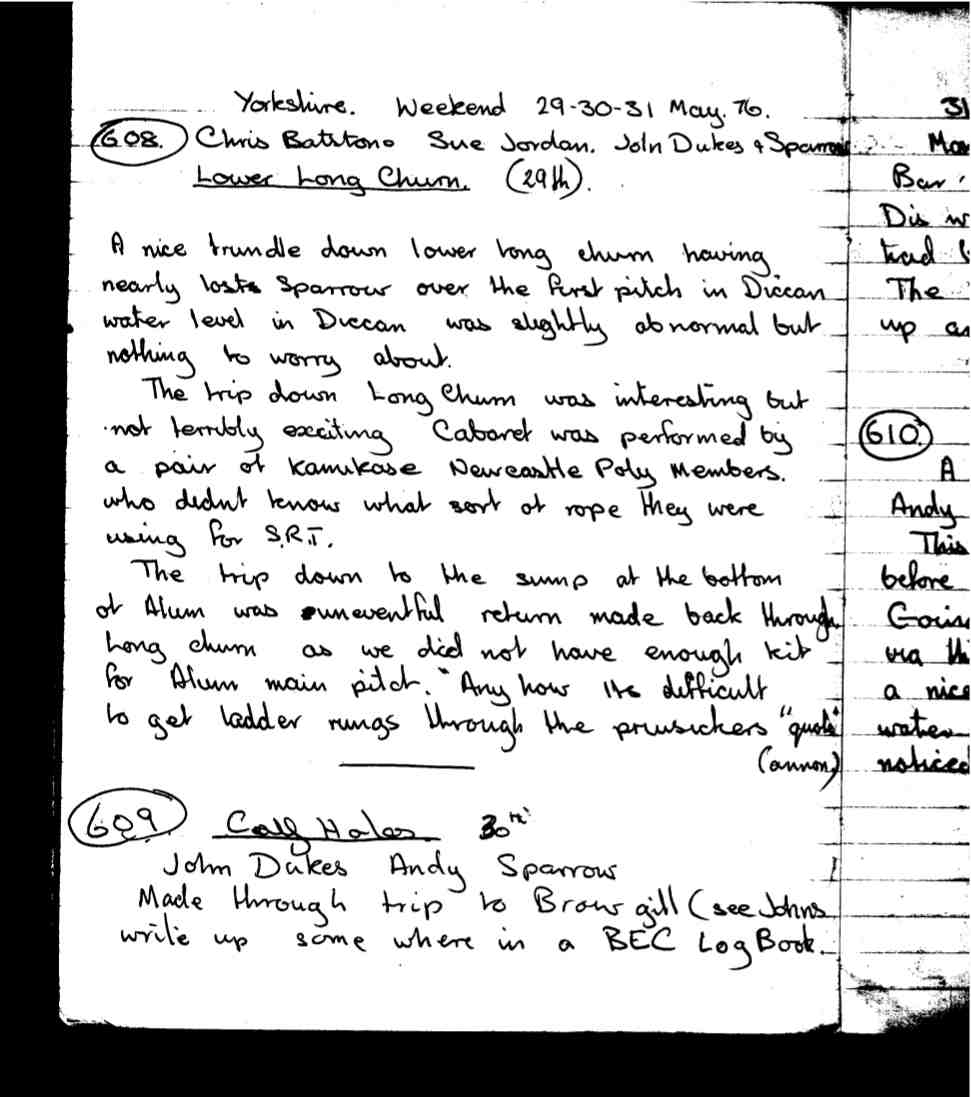 Yorkshire. Weekend 29-30-31 May. 76.
608. Chris Batstone Sue Jordan. John Dukes & Sparrow
Lower Long Churn. (29th).
A nice trundle down lower long churn having
nearly lost Sparrow over the first pitch in Diccan
water level in Diccan was slightly abnormal but
nothing to worry about.
The trip down Long Churn was interesting but
not terribly exciting Cabaret was performed by
a pair of Kamikase Newcastle Poly Members.
who didnt know what sort of rope they were
using for S.R.T.
The trip down to the sump at the bottom
of Alum was uneventful return made back through
Long churn as we did not have enough kit
for Alum main pitch. "Any how its difficult
to get ladder rungs through the prusickers "quote"
(annon)
609 Calf Holes 30th
John Dukes Andy Sparrow
Made through trip to Brow gill (see Johns
write up some where in a BEC Log Book.
31
Bar
Dis
The
up
610
A
Andy
This
before
via
a nice
water
noticed